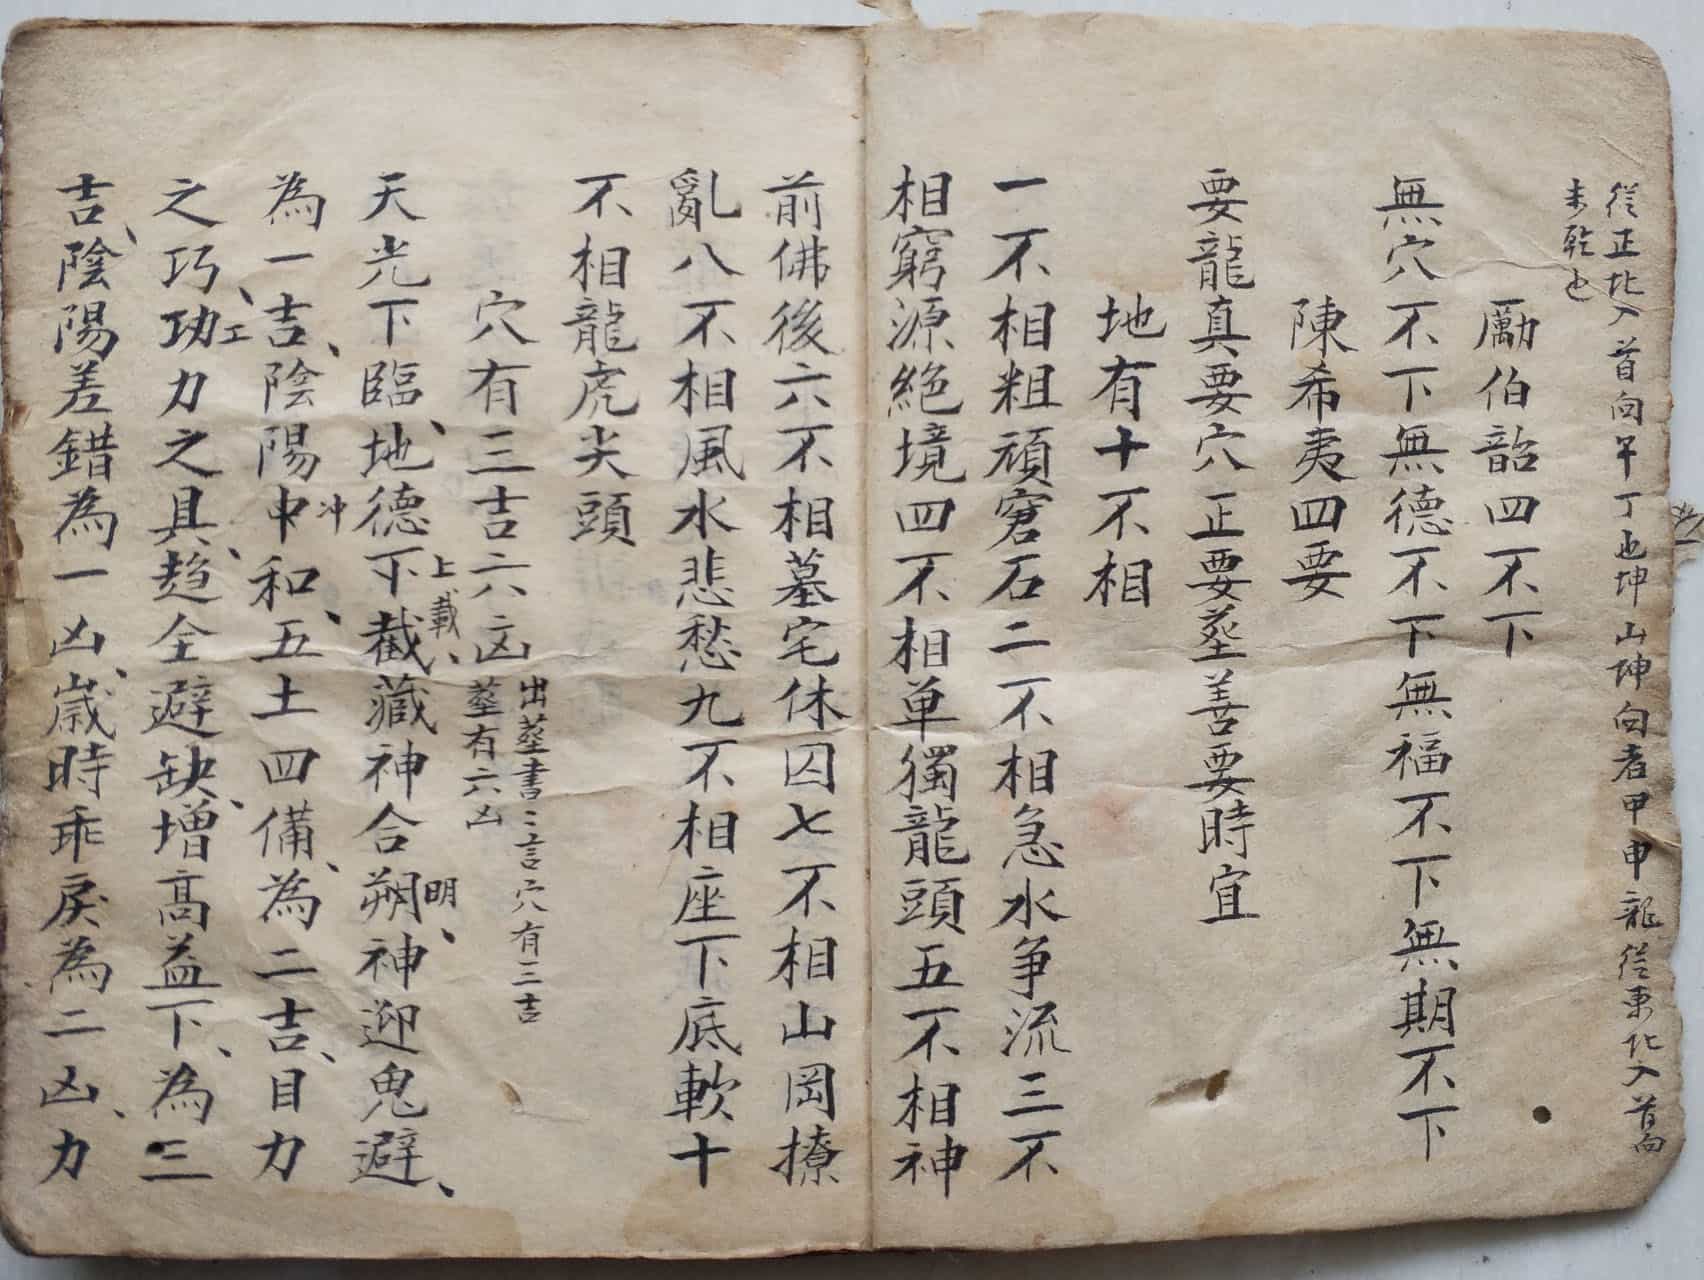 從正北入首向午丁也坤山坤向者甲申龍從東北入首向
未乾也
厲伯韶四不下
無穴不下無德不下無福不下無期不下
陳希夷四要
要龍真要穴正要塟善要時宜
地有十不相
一不相粗頑窘石二不相急水争流三不
相窮源絶境四不相单獨龍頭五不相神
前佛後六不相墓宅休囚七不相山岡撩
亂八不相風水悲愁九不相座下底軟十
不相龍虎尖頭
穴有三吉六凶
出塟書:言穴有三吉
塟有六凶
天光下臨、地德下截藏神合朔神迎鬼避、
上載、
明、
為一吉、陰陽中和、五土四備、為二吉、目力
冲
之巧、功力之具、趋全避缺、增高益下、為三
工
吉、陰陽差錯為一凶、歲時乖戾為二凶、力